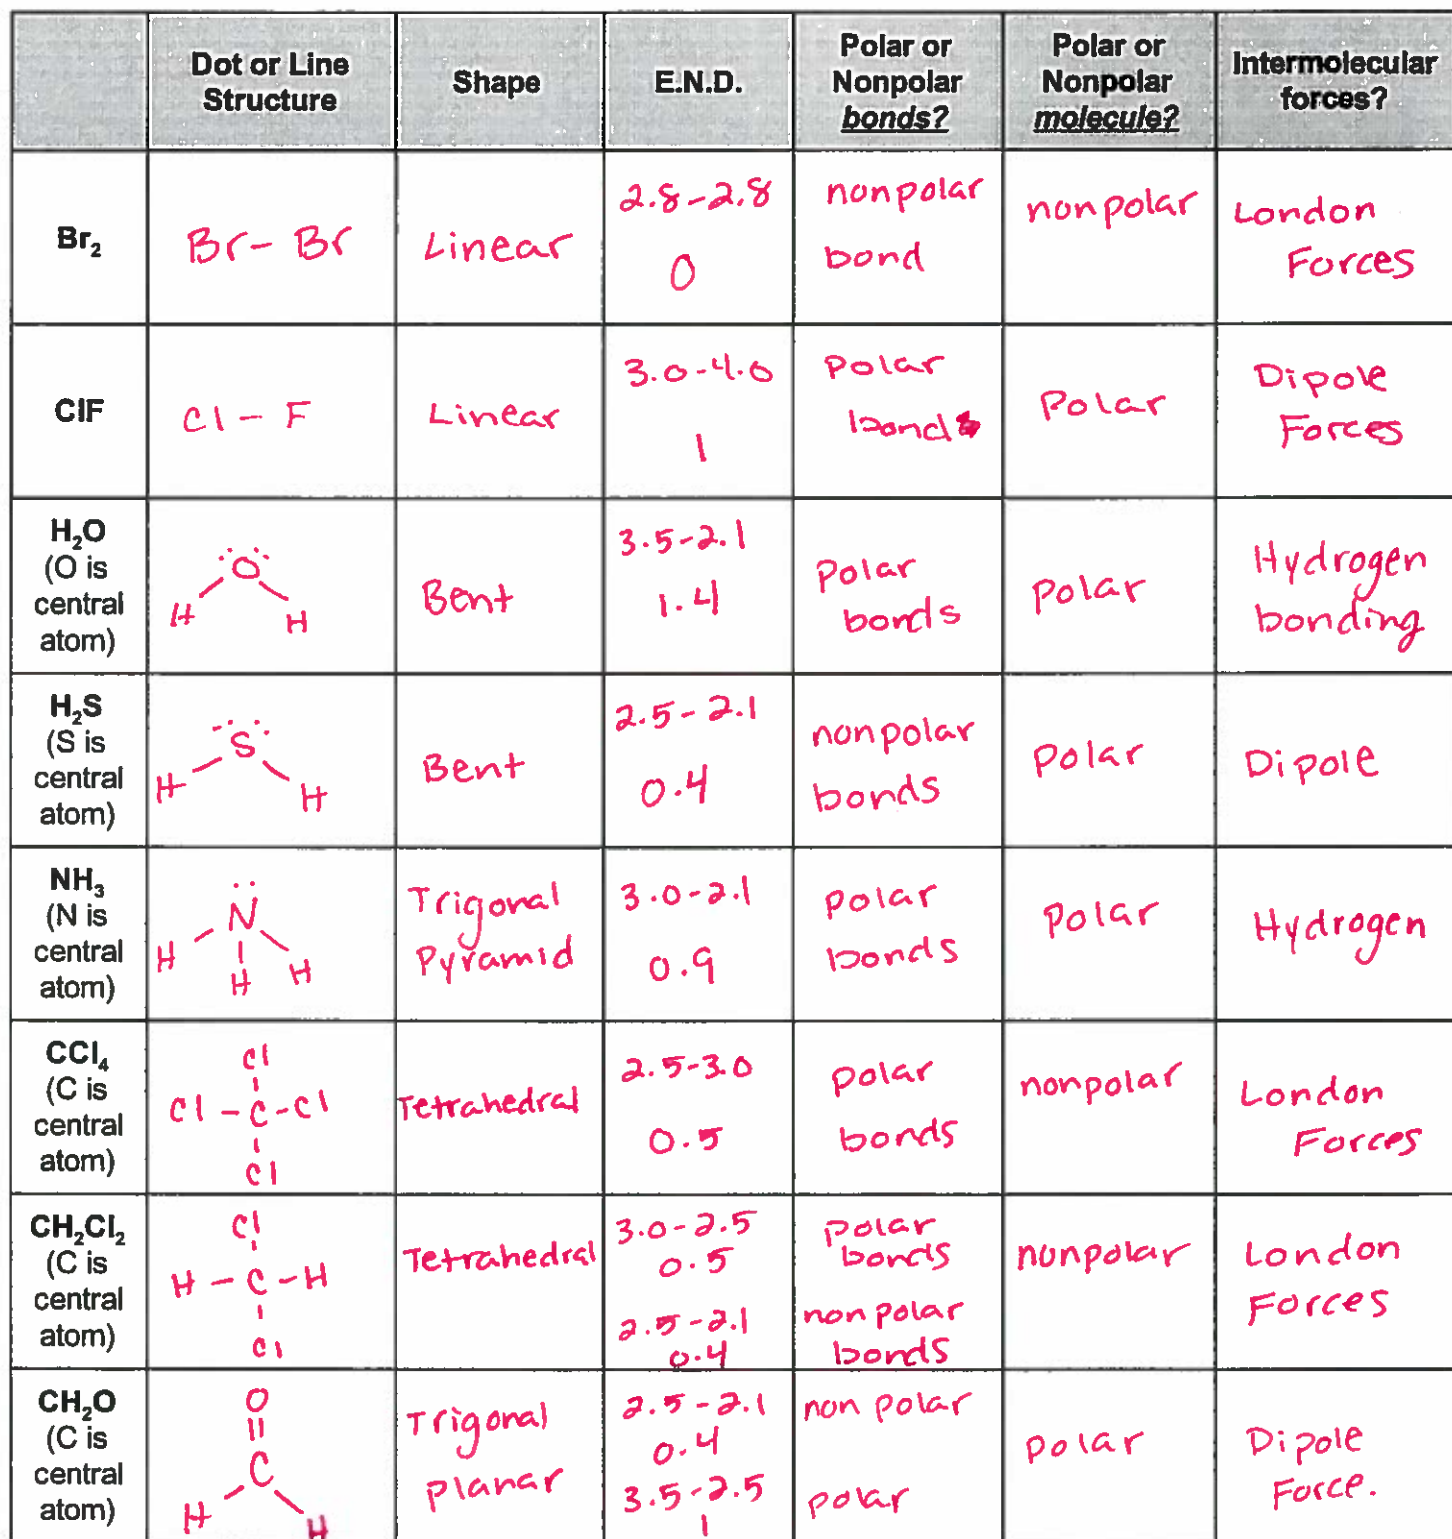 Dot or Line
Structure
Shape
E.N.D.
Polar or
Nonpolar
bonds?
Polar or
Nonpolar
molecule?
Intermolecular
forces?
Br₂
Br - Br
Linear
2.8-2.8
0
nonpolar
bond
nonpolar
London
Forces
ClF
Cl - F
Linear
3.0-4.0
1
Polar
bond
Polar
Dipole
Forces
H₂O
(O is
central
atom)
O
H H
Bent
3.5-2.1
1.4
Polar
bonds
Polar
Hydrogen
bonding
H₂S
(S is
central
atom)
S
H H
Bent
2.5-2.1
0.4
nonpolar
bonds
Polar
Dipole
NH₃
(N is
central
atom)
N
H H H
Trigonal
Pyramid
3.0-2.1
0.9
polar
bonds
Polar
Hydrogen
CCl₄
(C is
central
atom)
Cl
Cl - C - Cl
Cl
Tetrahedral
2.5-3.0
0.5
polar
bonds
nonpolar
London
Forces
CH₂Cl₂
(C is
central
atom)
Cl
H - C - H
Cl
Tetrahedral
3.0-2.5
0.5
2.5-2.1
0.4
polar
bonds
nonpolar
bonds
nonpolar
London
Forces
CH₂O
(C is
central
atom)
O
C
H H
Trigonal
planar
2.5-2.1
0.4
3.5-2.5
1
non polar
polar
polar
Dipole
Force.